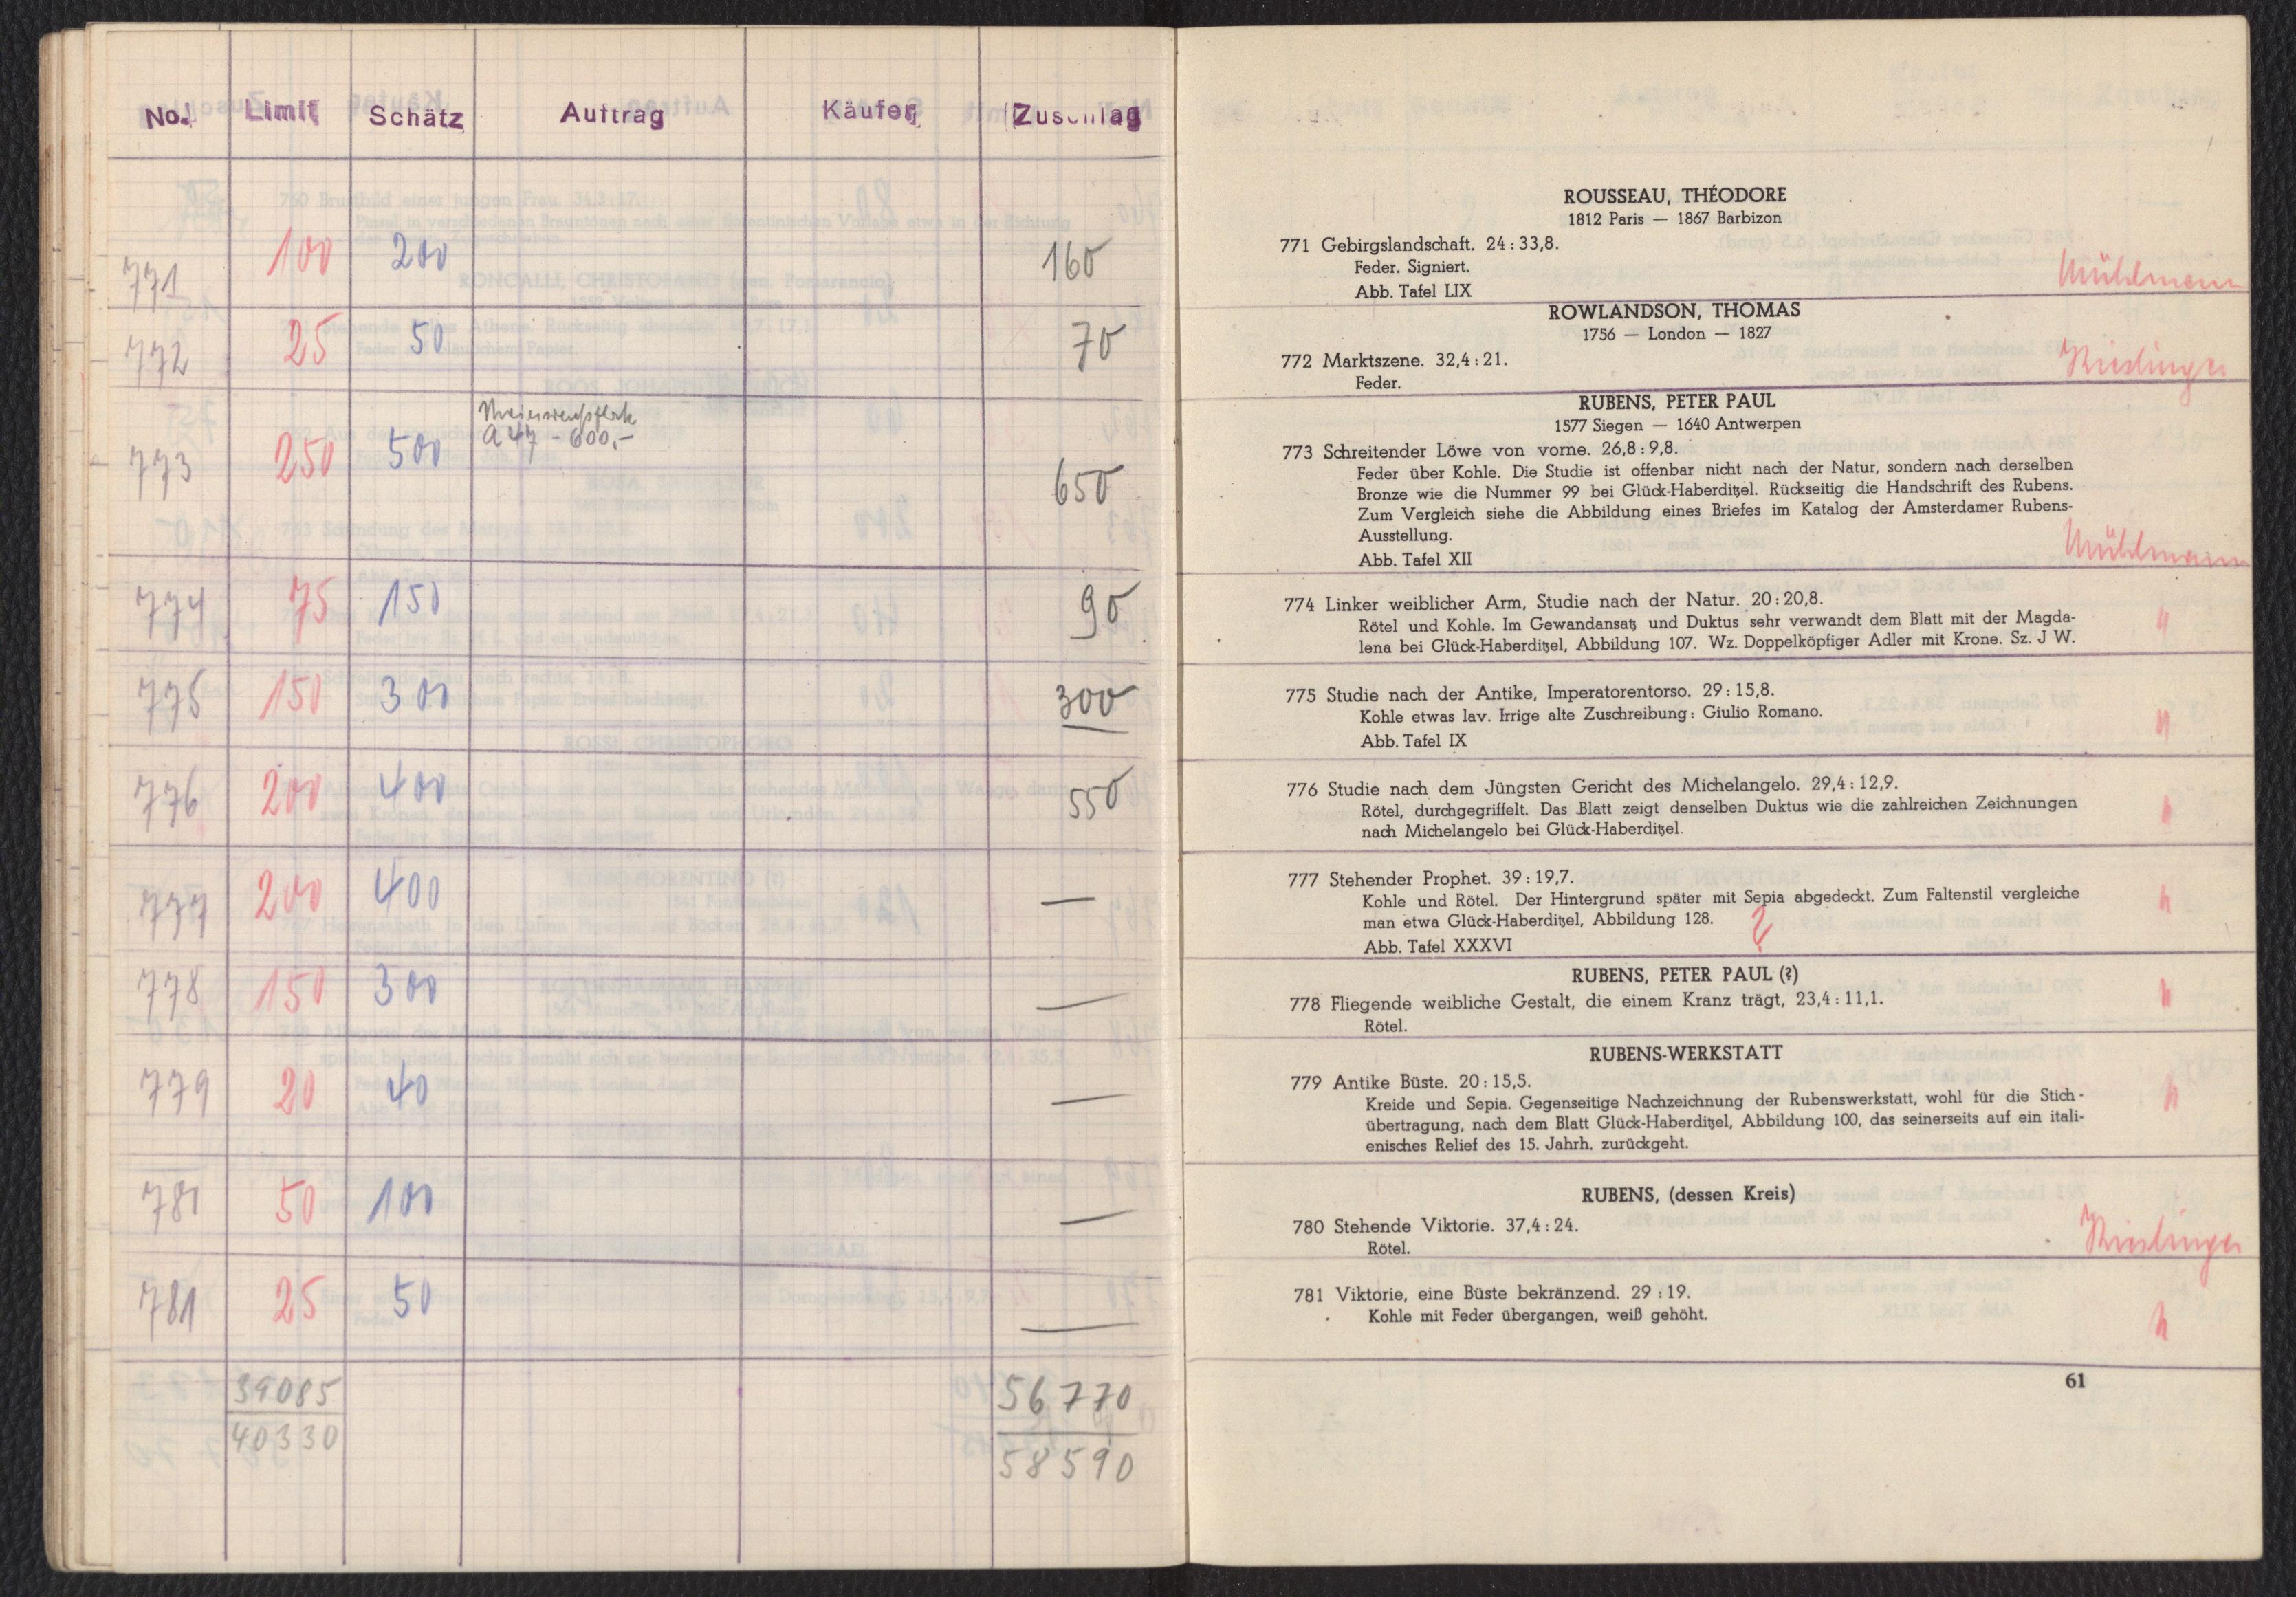 No. Limit Schätz Auftrag Käufer Zuschlag
771 100 200 160
772 25 50 70
773 250 500 A 47 - 600,- 650
774 75 150 90
775 150 300 300
776 200 400 550
777 200 400 —
778 150 300 —
779 20 40 —
781 50 100 —
781 25 50 —
39085 56770
40330 58590
ROUSSEAU, THÉODORE
1812 Paris — 1867 Barbizon
771 Gebirgslandschaft. 24 : 33,8.
Feder. Signiert.
Abb. Tafel LIX
Mühlmann
ROWLANDSON, THOMAS
1756 — London — 1827
772 Marktszene. 32,4 : 21.
Feder.
Kieslinger
RUBENS, PETER PAUL
1577 Siegen — 1640 Antwerpen
773 Schreitender Löwe von vorne. 26,8 : 9,8.
Feder über Kohle. Die Studie ist offenbar nicht nach der Natur, sondern nach derselben
Bronze wie die Nummer 99 bei Glück-Haberditzel. Rückseitig die Handschrift des Rubens.
Zum Vergleich siehe die Abbildung eines Briefes im Katalog der Amsterdamer Rubens-
Ausstellung.
Abb. Tafel XII
Mühlmann
774 Linker weiblicher Arm, Studie nach der Natur. 20 : 20,8.
Rötel und Kohle. Im Gewandansatz und Duktus sehr verwandt dem Blatt mit der Magda-
lena bei Glück-Haberditzel, Abbildung 107. Wz. Doppelköpfiger Adler mit Krone. Sz. J W.
775 Studie nach der Antike, Imperatorentorso. 29 : 15,8.
Kohle etwas lav. Irrige alte Zuschreibung : Giulio Romano.
Abb. Tafel IX
776 Studie nach dem Jüngsten Gericht des Michelangelo. 29,4 : 12,9.
Rötel, durchgegriffelt. Das Blatt zeigt denselben Duktus wie die zahlreichen Zeichnungen
nach Michelangelo bei Glück-Haberditzel.
777 Stehender Prophet. 39 : 19,7.
Kohle und Rötel. Der Hintergrund später mit Sepia abgedeckt. Zum Faltenstil vergleiche
man etwa Glück-Haberditzel, Abbildung 128. ?
Abb. Tafel XXXVI
RUBENS, PETER PAUL (?)
778 Fliegende weibliche Gestalt, die einem Kranz trägt, 23,4 : 11,1.
Rötel.
RUBENS-WERKSTATT
779 Antike Büste. 20 : 15,5.
Kreide und Sepia. Gegenseitige Nachzeichnung der Rubenswerkstatt, wohl für die Stich-
übertragung, nach dem Blatt Glück-Haberditzel, Abbildung 100, das seinerseits auf ein itali-
enisches Relief des 15. Jahrh. zurückgeht.
RUBENS, (dessen Kreis)
780 Stehende Viktorie. 37,4 : 24.
Rötel.
Kieslinger
781 Viktorie, eine Büste bekränzend. 29 : 19.
Kohle mit Feder übergangen, weiß gehöht.
61